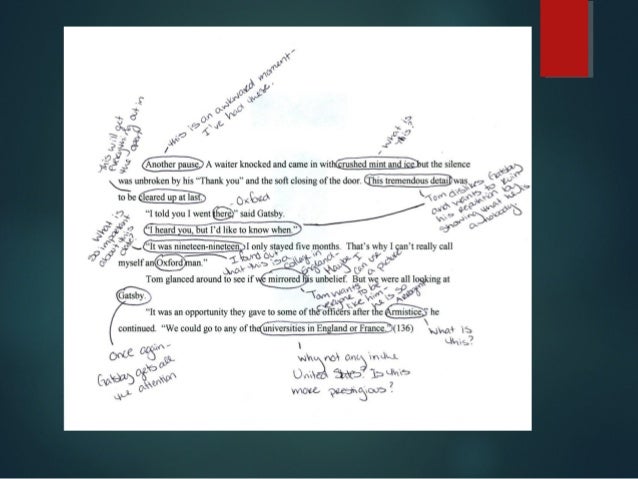 this is an awkward moment-
I've had these.
this will get
everything out in
the open
what is
this?
Another pause. A waiter knocked and came in with crushed mint and ice but the silence
was unbroken by his "Thank you" and the soft closing of the door. This tremendous detail was
to be cleared up at last.
Oxford
Tom dislikes Gatsby
and wants to ruin
his reputation by
showing what he's
actually
"I told you I went there," said Gatsby.
"I heard you, but I'd like to know when."
What is
so important
about this
date
"It was nineteen-nineteen, I only stayed five months. That's why I can't really call
myself an Oxford man."
I found out
that this is a
college in
England-
Maybe I
can use
a picture
Tom glanced around to see if we mirrored his unbelief. But we were all looking at
Gatsby.
Tom wants
everyone to be
like him-
he is so
arrogant
"It was an opportunity they gave to some of the officers after the Armistice," he
continued. "We could go to any of the universities in England or France." (136)
What is
this?
Once again-
Gatsby gets all
the attention
why not any in the
United States? Is this
more prestigious?